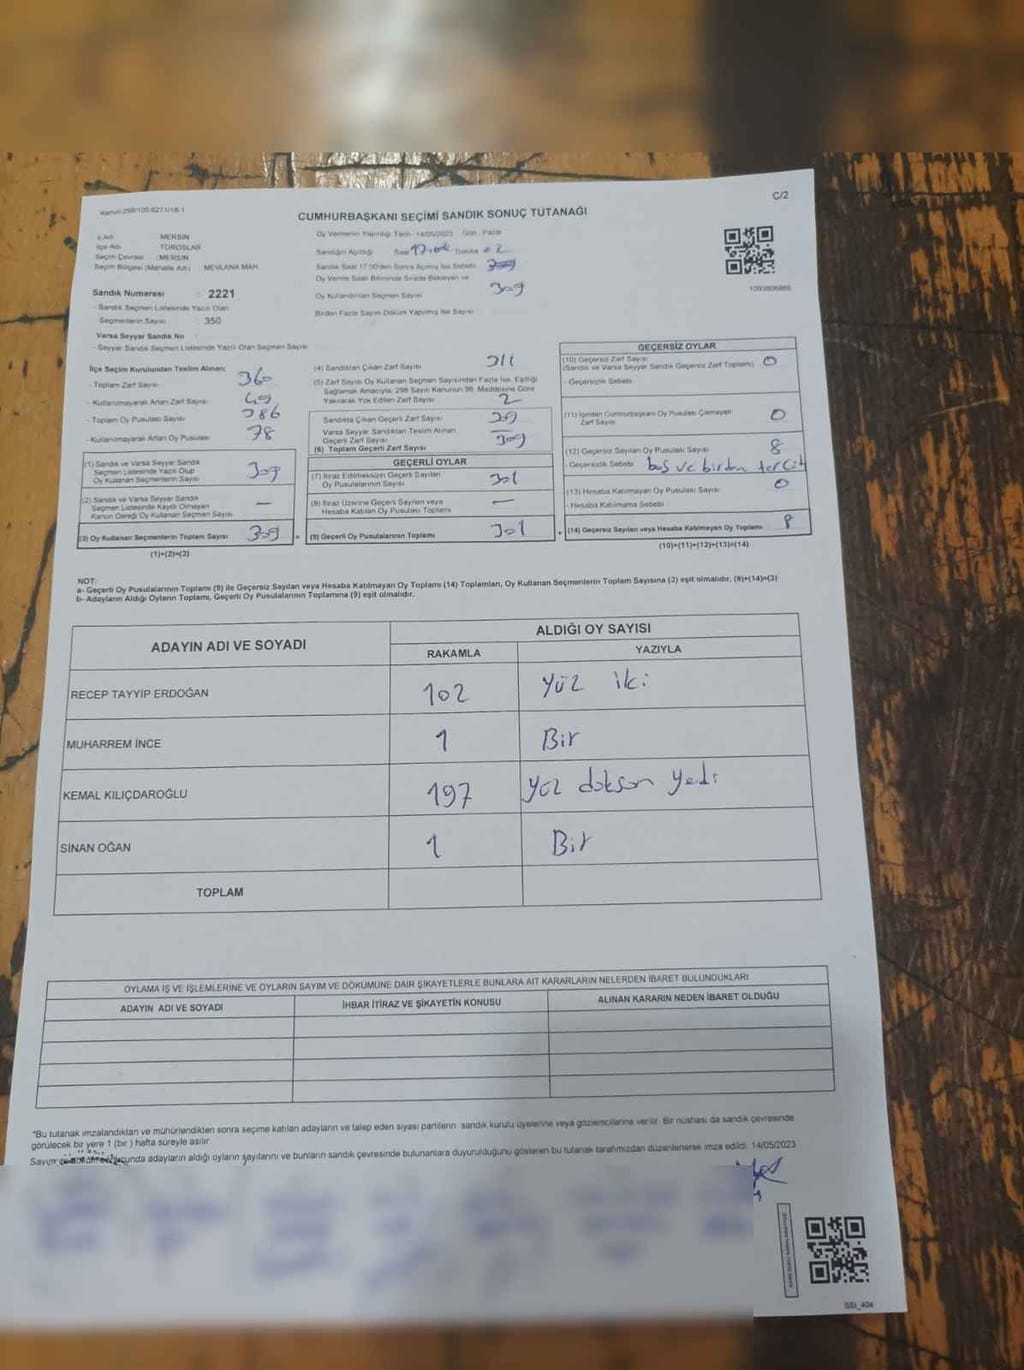 Kanun:298/105/6271/18-1
C/2
CUMHURBAŞKANI SEÇİMİ SANDIK SONUÇ TUTANAĞI
İli Adı : MERSİN
İlçe Adı : TOROSLAR
Seçim Çevresi : MERSİN
Seçim Bölgesi (Mahalle Adı) : MEVLANA MAH.
Sandık Numarası : 2221
- Sandık Seçmen Listesinde Yazılı Olan
Seçmenlerin Sayısı : 350
Varsa Seyyar Sandık No :
- Seyyar Sandık Seçmen Listesinde Yazılı Olan Seçmen Sayısı
Oy Vermenin Yapıldığı Tarih : 14/05/2023 Gün : Pazar
Sandığın Açıldığı Saat 17 Dakika 2
Sandık Saat 17.00'den Sonra Açılmış İse Sebebi
Oy Verme Saati Bitiminde Sırada Bekleyen ve
Oy Kullandırılan Seçmen Sayısı 309
Birden Fazla Sayım Döküm Yapılmış İse Sayısı
1093806866
İlçe Seçim Kurulundan Teslim Alınan;
- Toplam Zarf Sayısı 360
- Kullanılmayarak Artan Zarf Sayısı 49
- Toplam Oy Pusulası Sayısı 386
- Kullanılmayarak Artan Oy Pusulası 78
(1) Sandık ve Varsa Seyyar Sandık
Seçmen Listesinde Yazılı Olup
Oy Kullanan Seçmenlerin Sayısı 309
(2) Sandık ve Varsa Seyyar Sandık
Seçmen Listesinde Kayıtlı Olmayan
Kanun Gereği Oy Kullanan Seçmen Sayısı —
(3) Oy Kullanan Seçmenlerin Toplam Sayısı 309
(1)+(2)=(3)
(4) Sandıktan Çıkan Zarf Sayısı 311
(5) Zarf Sayısı Oy Kullanan Seçmen Sayısından Fazla İse, Eşitliği
Sağlamak Amacıyla, 298 Sayılı Kanunun 98. Maddesine Göre
Yakılarak Yok Edilen Zarf Sayısı 2
Sandıkta Çıkan Geçerli Zarf Sayısı 309
Varsa Seyyar Sandıktan Teslim Alınan
Geçerli Zarf Sayısı —
(6) Toplam Geçerli Zarf Sayısı 309
GEÇERLİ OYLAR
(7) İtiraz Edilmeksizin Geçerli Sayılan
Oy Pusulalarının Sayısı 301
(8) İtiraz Üzerine Geçerli Sayılan veya
Hesaba Katılan Oy Pusulası Toplamı —
(9) Geçerli Oy Pusulalarının Toplamı 301
GEÇERSİZ OYLAR
(10) Geçersiz Zarf Sayısı 0
(Sandık ve Varsa Seyyar Sandık Geçersiz Zarf Toplamı)
- Geçersizlik Sebebi
(11) İçinden Cumhurbaşkanı Oy Pusulası Çıkmayan
Zarf Sayısı 0
(12) Geçersiz Sayılan Oy Pusulası Sayısı 8
- Geçersizlik Sebebi boş ve birden tercih
(13) Hesaba Katılmayan Oy Pusulası Sayısı 0
- Hesaba Katılmama Sebebi
(14) Geçersiz Sayılan veya Hesaba Katılmayan Oy Toplamı 8
(10)+(11)+(12)+(13)=(14)
NOT:
a- Geçerli Oy Pusulalarının Toplamı (9) ile Geçersiz Sayılan veya Hesaba Katılmayan Oy Toplamı (14) Toplamları, Oy Kullanan Seçmenlerin Toplam Sayısına (3) eşit olmalıdır. (9)+(14)=(3)
b- Adayların Aldığı Oyların Toplamı, Geçerli Oy Pusulalarının Toplamına (9) eşit olmalıdır.
ADAYIN ADI VE SOYADI
ALDIĞI OY SAYISI
RAKAMLA YAZIYLA
RECEP TAYYİP ERDOĞAN 102 Yüz iki
MUHARREM İNCE 1 Bir
KEMAL KILIÇDAROĞLU 197 Yüz doksan yedi
SİNAN OĞAN 1 Bir
TOPLAM
OYLAMA İŞ VE İŞLEMLERİNE VE OYLARIN SAYIM VE DÖKÜMÜNE DAİR ŞİKAYETLERLE BUNLARA AİT KARARLARIN NELERDEN İBARET BULUNDUKLARI
ADAYIN ADI VE SOYADI İHBAR İTİRAZ VE ŞİKAYETİN KONUSU ALINAN KARARIN NEDEN İBARET OLDUĞU
*Bu tutanak imzalandıktan ve mühürlendikten sonra seçime katılan adayların ve talep eden siyasi partilerin sandık kurulu üyelerine veya gözlemcilerine verilir. Bir nüshası da sandık çevresinde
görülecek bir yere 1 (bir) hafta süreyle asılır.
Sayım adayların aldığı oyların sayılarını ve bunların sandık çevresinde bulunanlara duyurulduğunu gösteren bu tutanak tarafımızdan düzenlenerek imza edildi. 14/05/2023
SSI_404